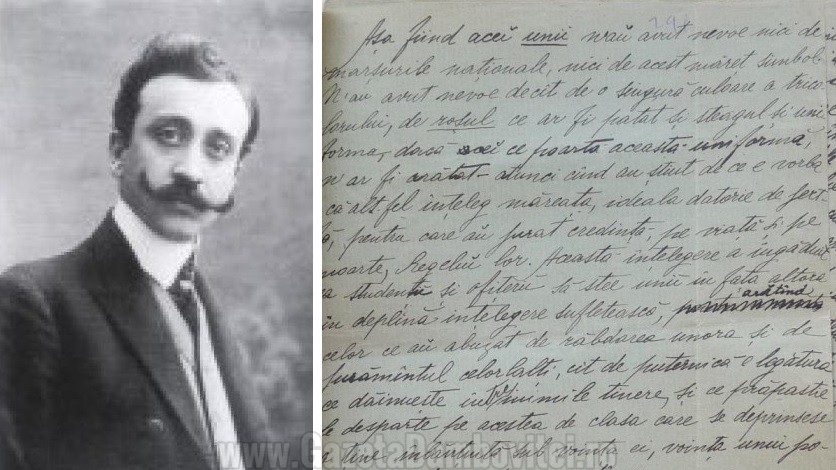 Așa fiind acei unii n'au avut nevoe nici de
marșurile naționale, nici de acest măreț simbol.
N'au avut nevoe decît de o singura culoare a trico
lorului, de roșul ce ar fi pătat și steagul și uni
forma, dacă acei ce poartă această uniformă,
n'ar fi arătat atunci cînd au știut de ce e vorba
că altfel înțeleg măreața, ideala datorie de jert
fă, pentru care au jurat credință, pe viață și pe
moarte, Regelui lor. Această înțelegere a îngăduit
ca studenții și ofițerii să stee unii în fața altora
în deplină înțelegere sufletească, arătînd
celor ce au abuzat de răbdarea unora și de
jurămîntul celorlalți, cît de puternică e legătura
ce dăinuește în inimile tinere, și ce prăpastie
le desparte pe acestea de clasa care se deprinsese
a ține sub voința ei, voința unui po
www.GazetaDambovitei.ro